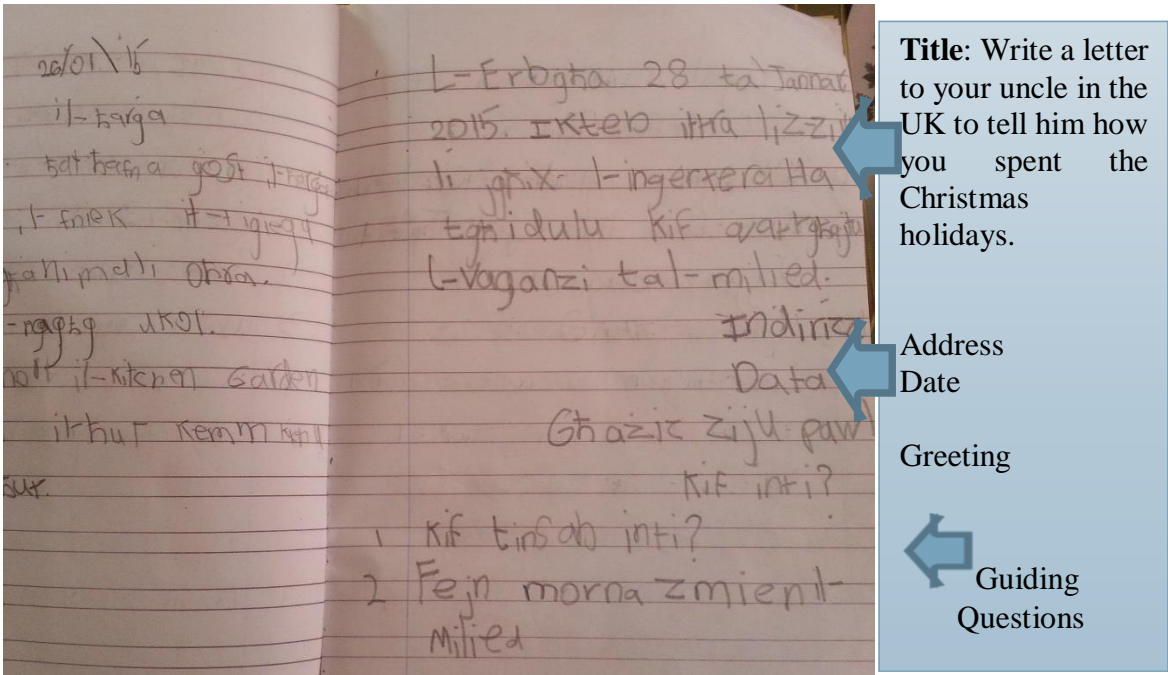 26/01\15
il-ħarġa
ħatħafna gost il-ħarġa
il-fniek it-tiġieġ
oħra.
ukoll.
il-Kitchen Garden
L-Erbgħa 28 ta' Jannar
2015. Ikteb ittra liz-ziju
li jgħix l-ingerterra Ha
tgħidulu kif
l-vaganzi tal-milied.
Indirizz
Data
Għaziz ziju pawl
Kif inti?
1 Kif tinsab inti?
2 Fejn morna zmien il-
Milied
Title: Write a letter
to your uncle in the
UK to tell him how
you spent the
Christmas
holidays.
Address
Date
Greeting
Guiding
Questions